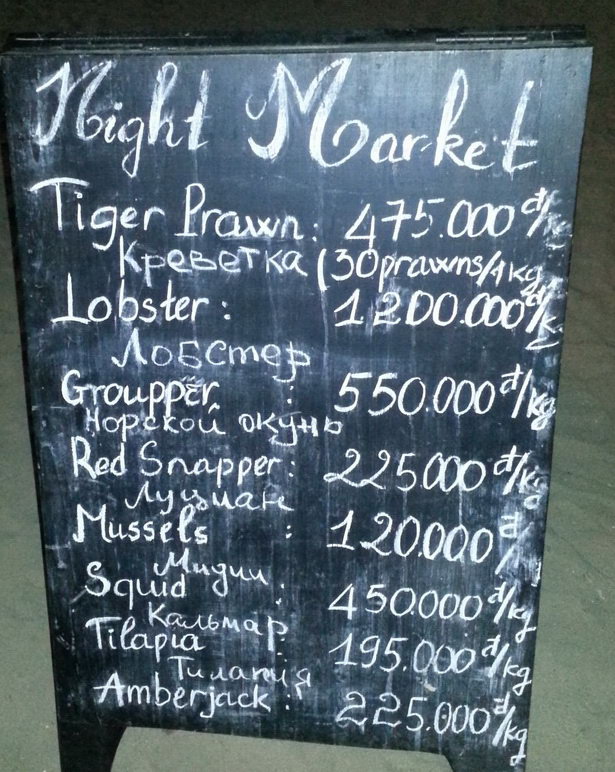 Night Market
Tiger Prawn: 475.000đ/kg
Креветка (30prawns/1kg
Lobster: 1200.000đ/k
Лобстер
Groupper : 550.000đ/kg
Морской окунь
Red Snapper: 225.000đ/kg
Луциан
Mussels : 120.000đ/
Мидии
Squid : 450.000đ/kg
Кальмар
Tilapia : 195.000đ/kg
Тилапия
Amberjack : 225.000đ/kg